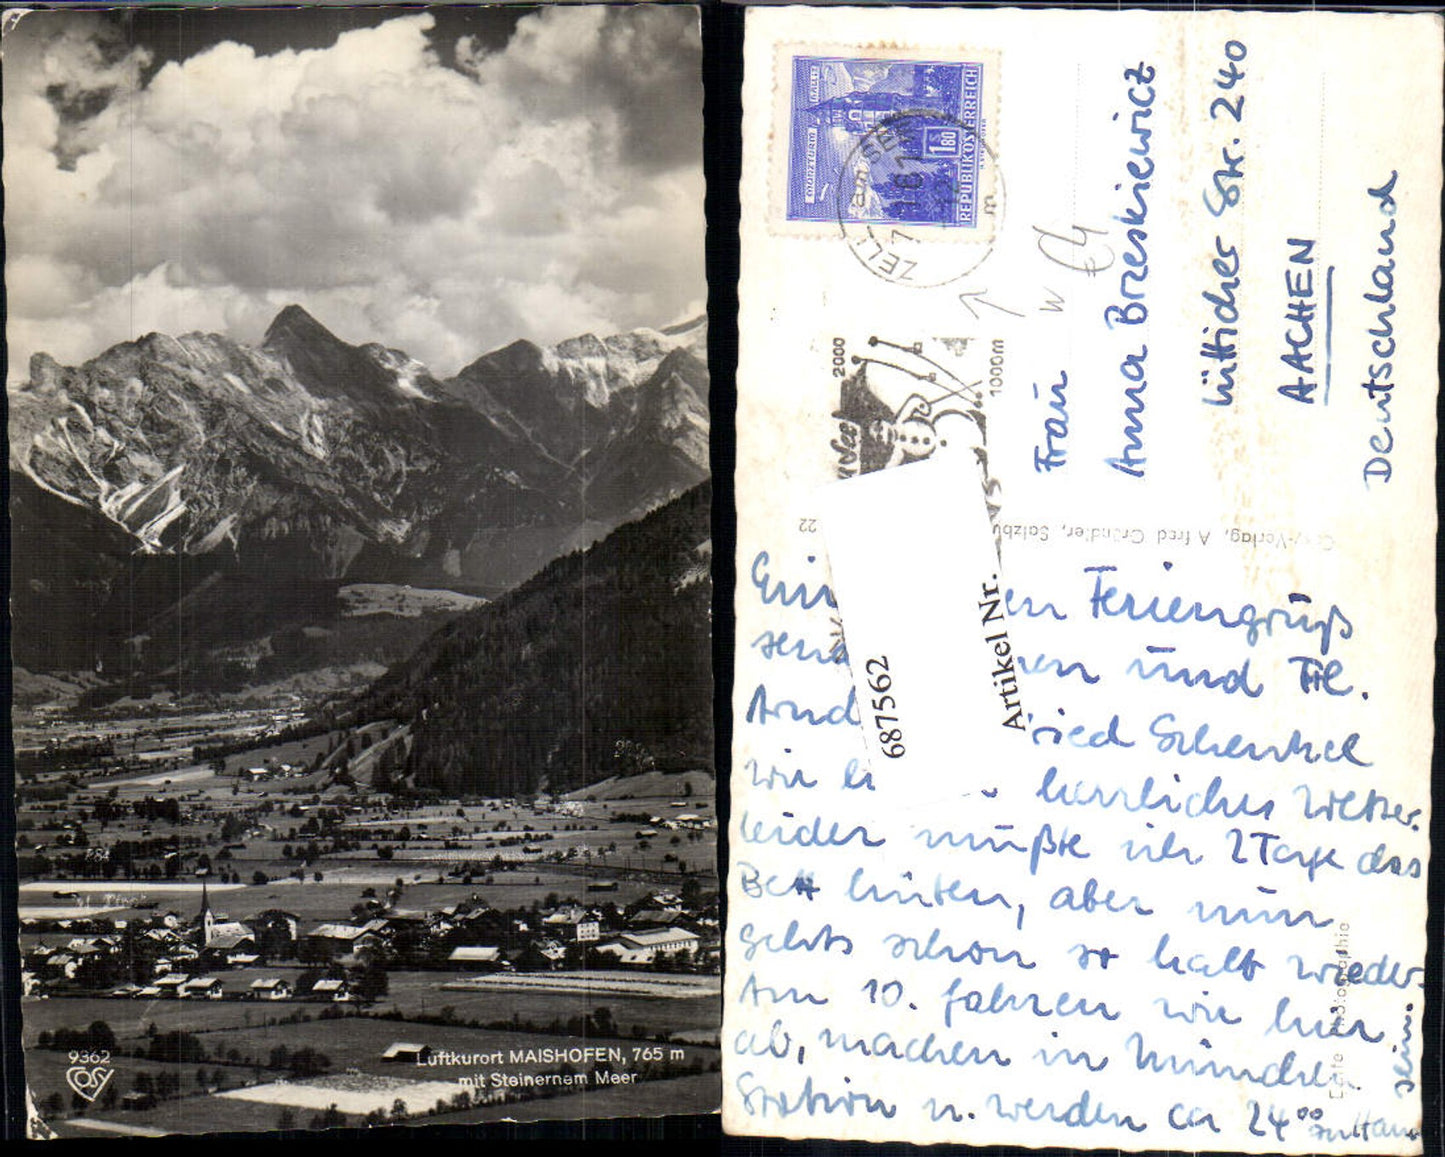 9362
COSY
Luftkurort MAISHOFEN, 765 m
mit Steinernem Meer
REPUBLIK ÖSTERREICH
S 1.80
MÜNZTURM
ZELL am SEE
2000
1000m
€4
W
Frau
Anna Brzeskiewicz
Lütticher Str. 240
AACHEN
Deutschland
Cosy-Verlag, Alfred Gründler, Salzbu
22
Echte Photographie
Artikel Nr.
687562
en Feriengruß
und Frl.
ried Schenkel
wir herrliches Wetter.
leider mußte ich 2 Tage das
Bett hüten, aber nun
gehts schon so halb wieder.
Am 10. fahren wir hier
ab, machen in München
Station u. werden ca 24⁰⁰ zu Hause
sein.